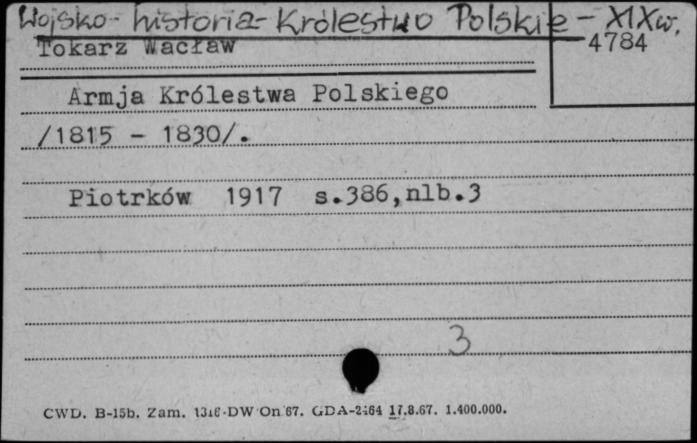 Wojsko - historia - Królestwo Polskie - XIXw.
Tokarz Wacław 4784
Armja Królestwa Polskiego
/1815 - 1830/.
Piotrków 1917 s.386,nlb.3
3
CWD. B-15b. Zam. DW On 67. GDA- 17.8.67. 1.400.000.